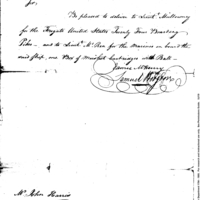 Sir,
Be pleased to deliver to Lieut. McElroy
for the Frigate United States Twenty Four Boarding
Pikes – and to Lieut. McRea for the Marines on board the
said Ship, one Box of Musket Cartridges with Ball –
James McHenry
Samuel Hodgdon
Mr John Harris